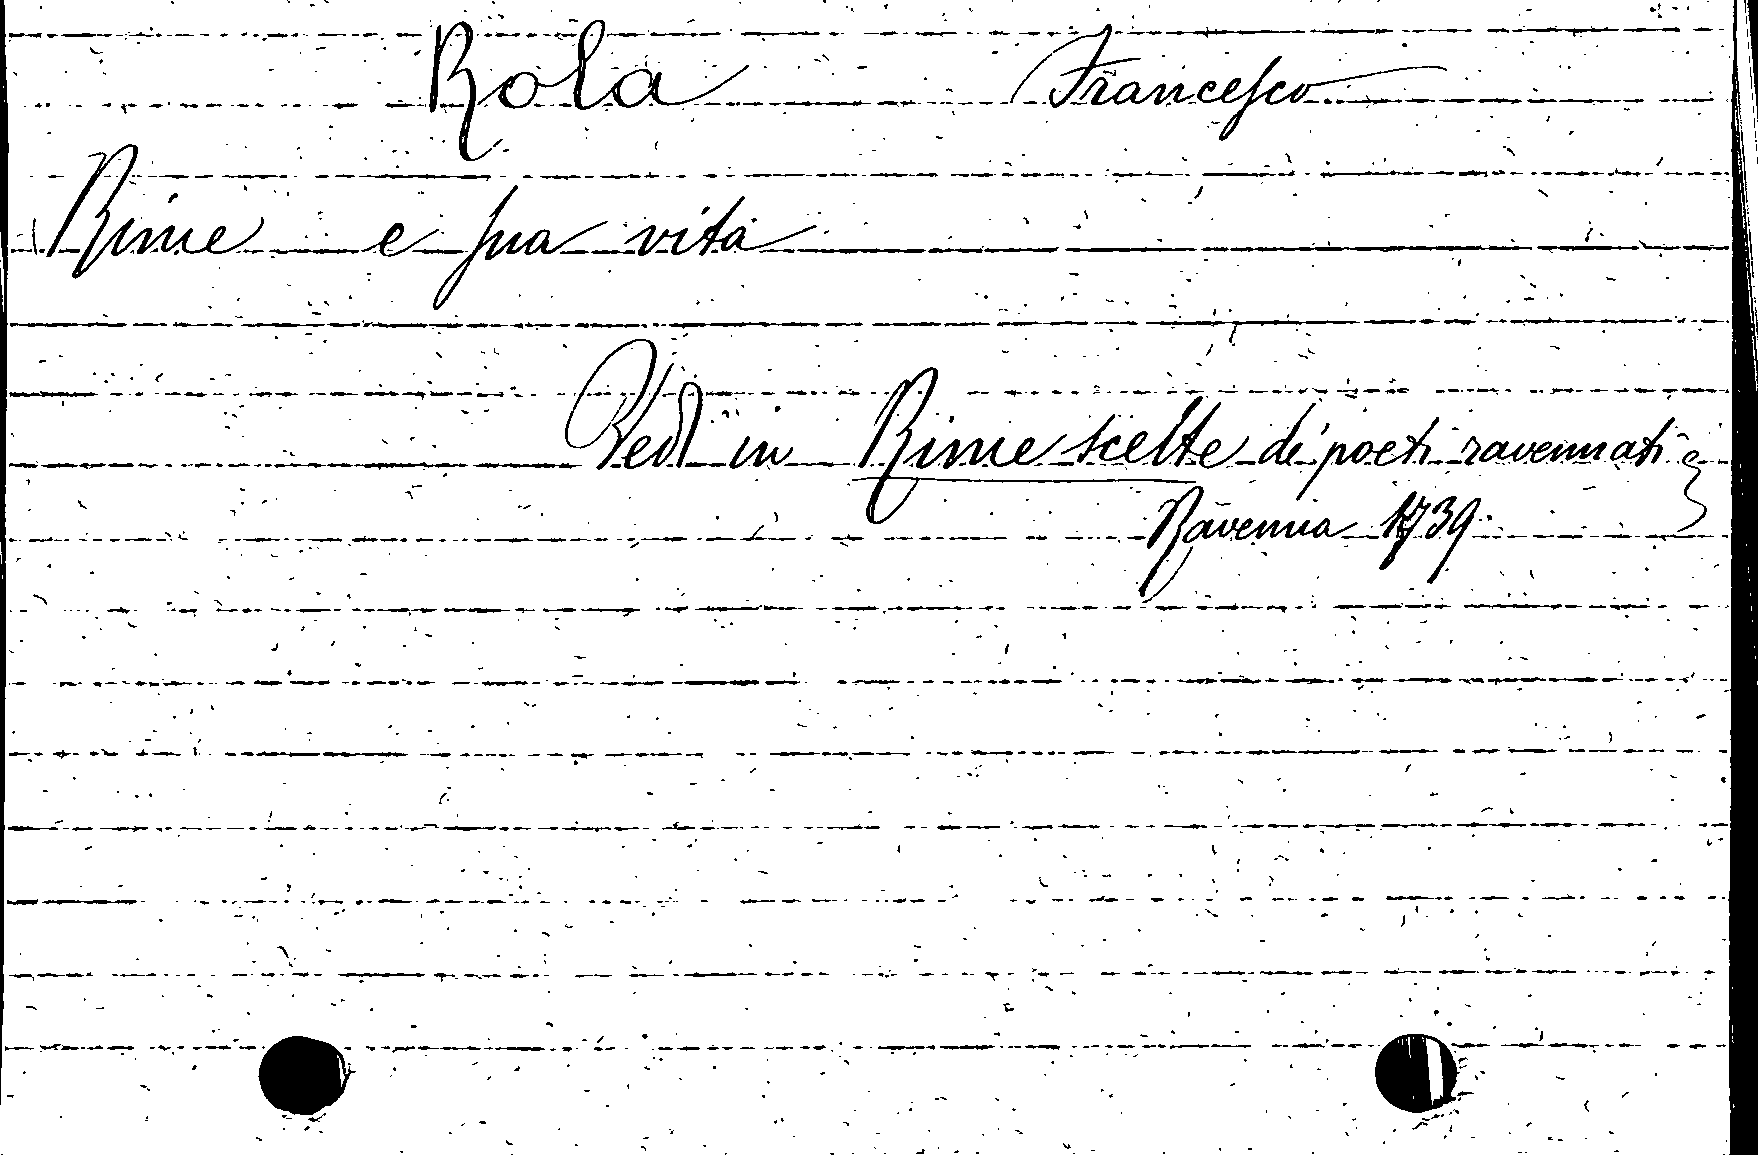 Rota Francesco
Rime e sua vita
Vedi in Rime scelte de' poeti ravennati
Ravenna 1739.